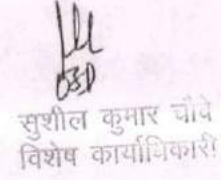 OSD
सुशील कुमार चौवे
विशेष कार्याधिकारी